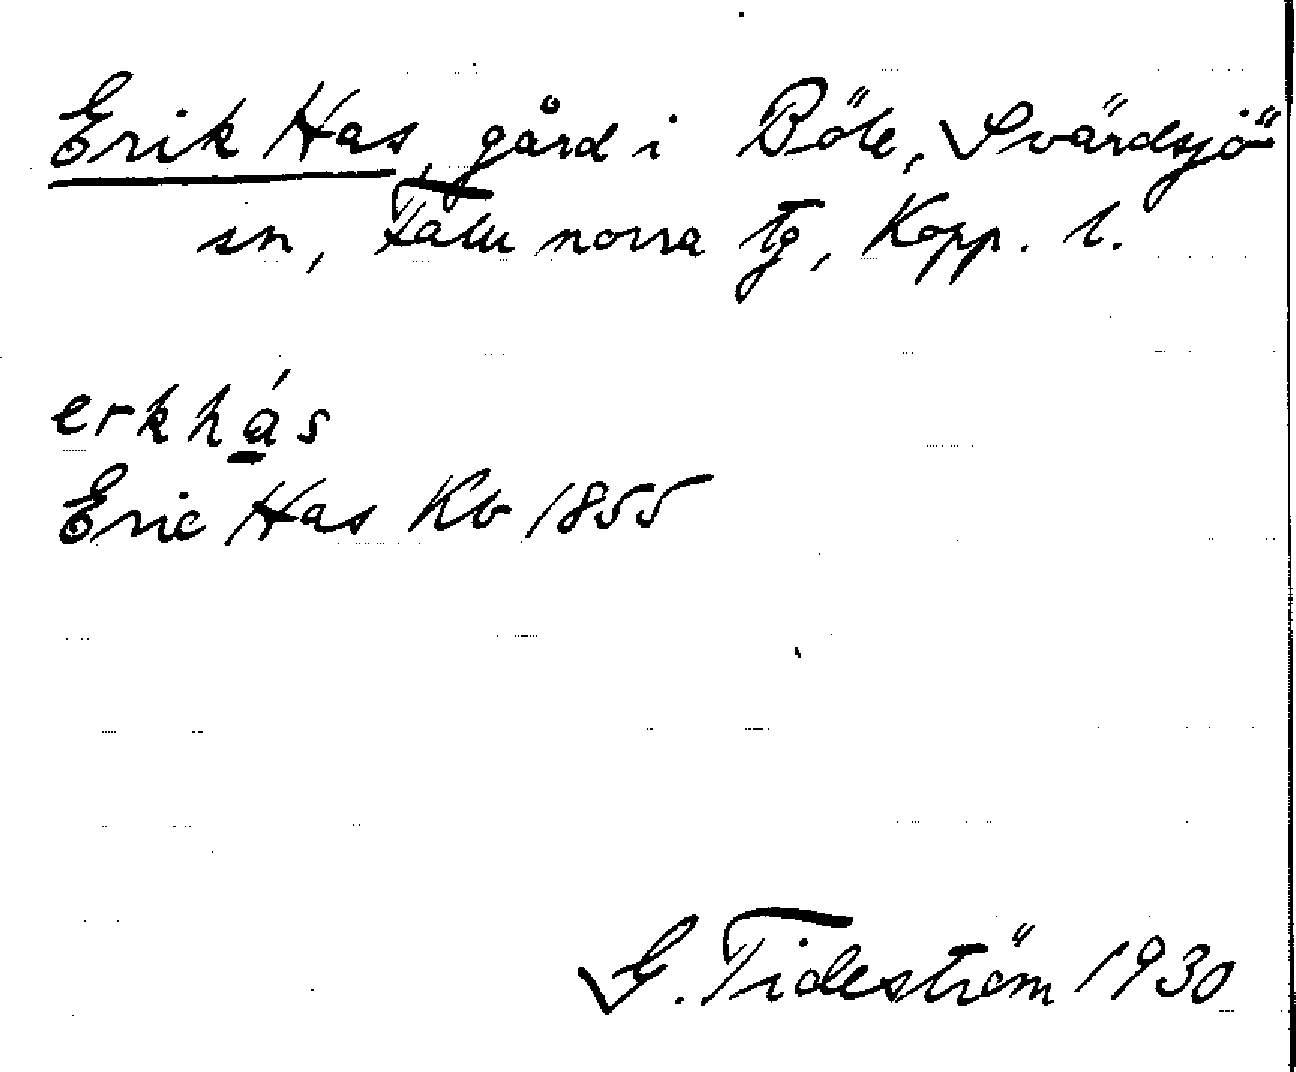 Erik Has, gård i Böle, Svärdsjö
sn, Falu norra tg, Kopp. l.
erkhá̠s
Eric Has Kb 1855
G. Tideström 1930